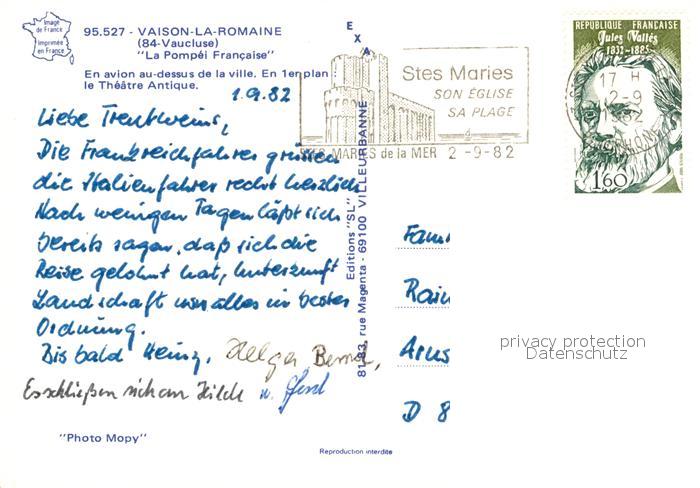 Image
de France
Imprimée
en France
95.527 - VAISON-LA-ROMAINE
(84-Vaucluse)
"La Pompéi Française"
En avion au-dessus de la ville. En 1er plan :
le Théâtre Antique.
1.9.82
Liebe Trentweins,
Die Frankreichfahrer grüssen
die Italienfahrer recht herzlich
Nach wenigen Tagen läßt sich
bereits sagen, daß sich die
Reise gelohnt hat, Unterkunft
Landschaft usw alles in bester
Ordnung.
Bis bald Heinz, Helga Bernd,
Es schließen sich an Hilde u.
"Photo Mopy"
EXA
Editions "SL"
81-83, rue Magenta - 69100 VILLEURBANNE
Reproduction interdite
Stes Maries
SON ÉGLISE
SA PLAGE
MARIES de la MER 2-9-82
REPUBLIQUE FRANÇAISE
Jules Vallès
1832-1885
17 H
2-9
1,60
Fam
Rain
D 8
privacy protection
Datenschutz